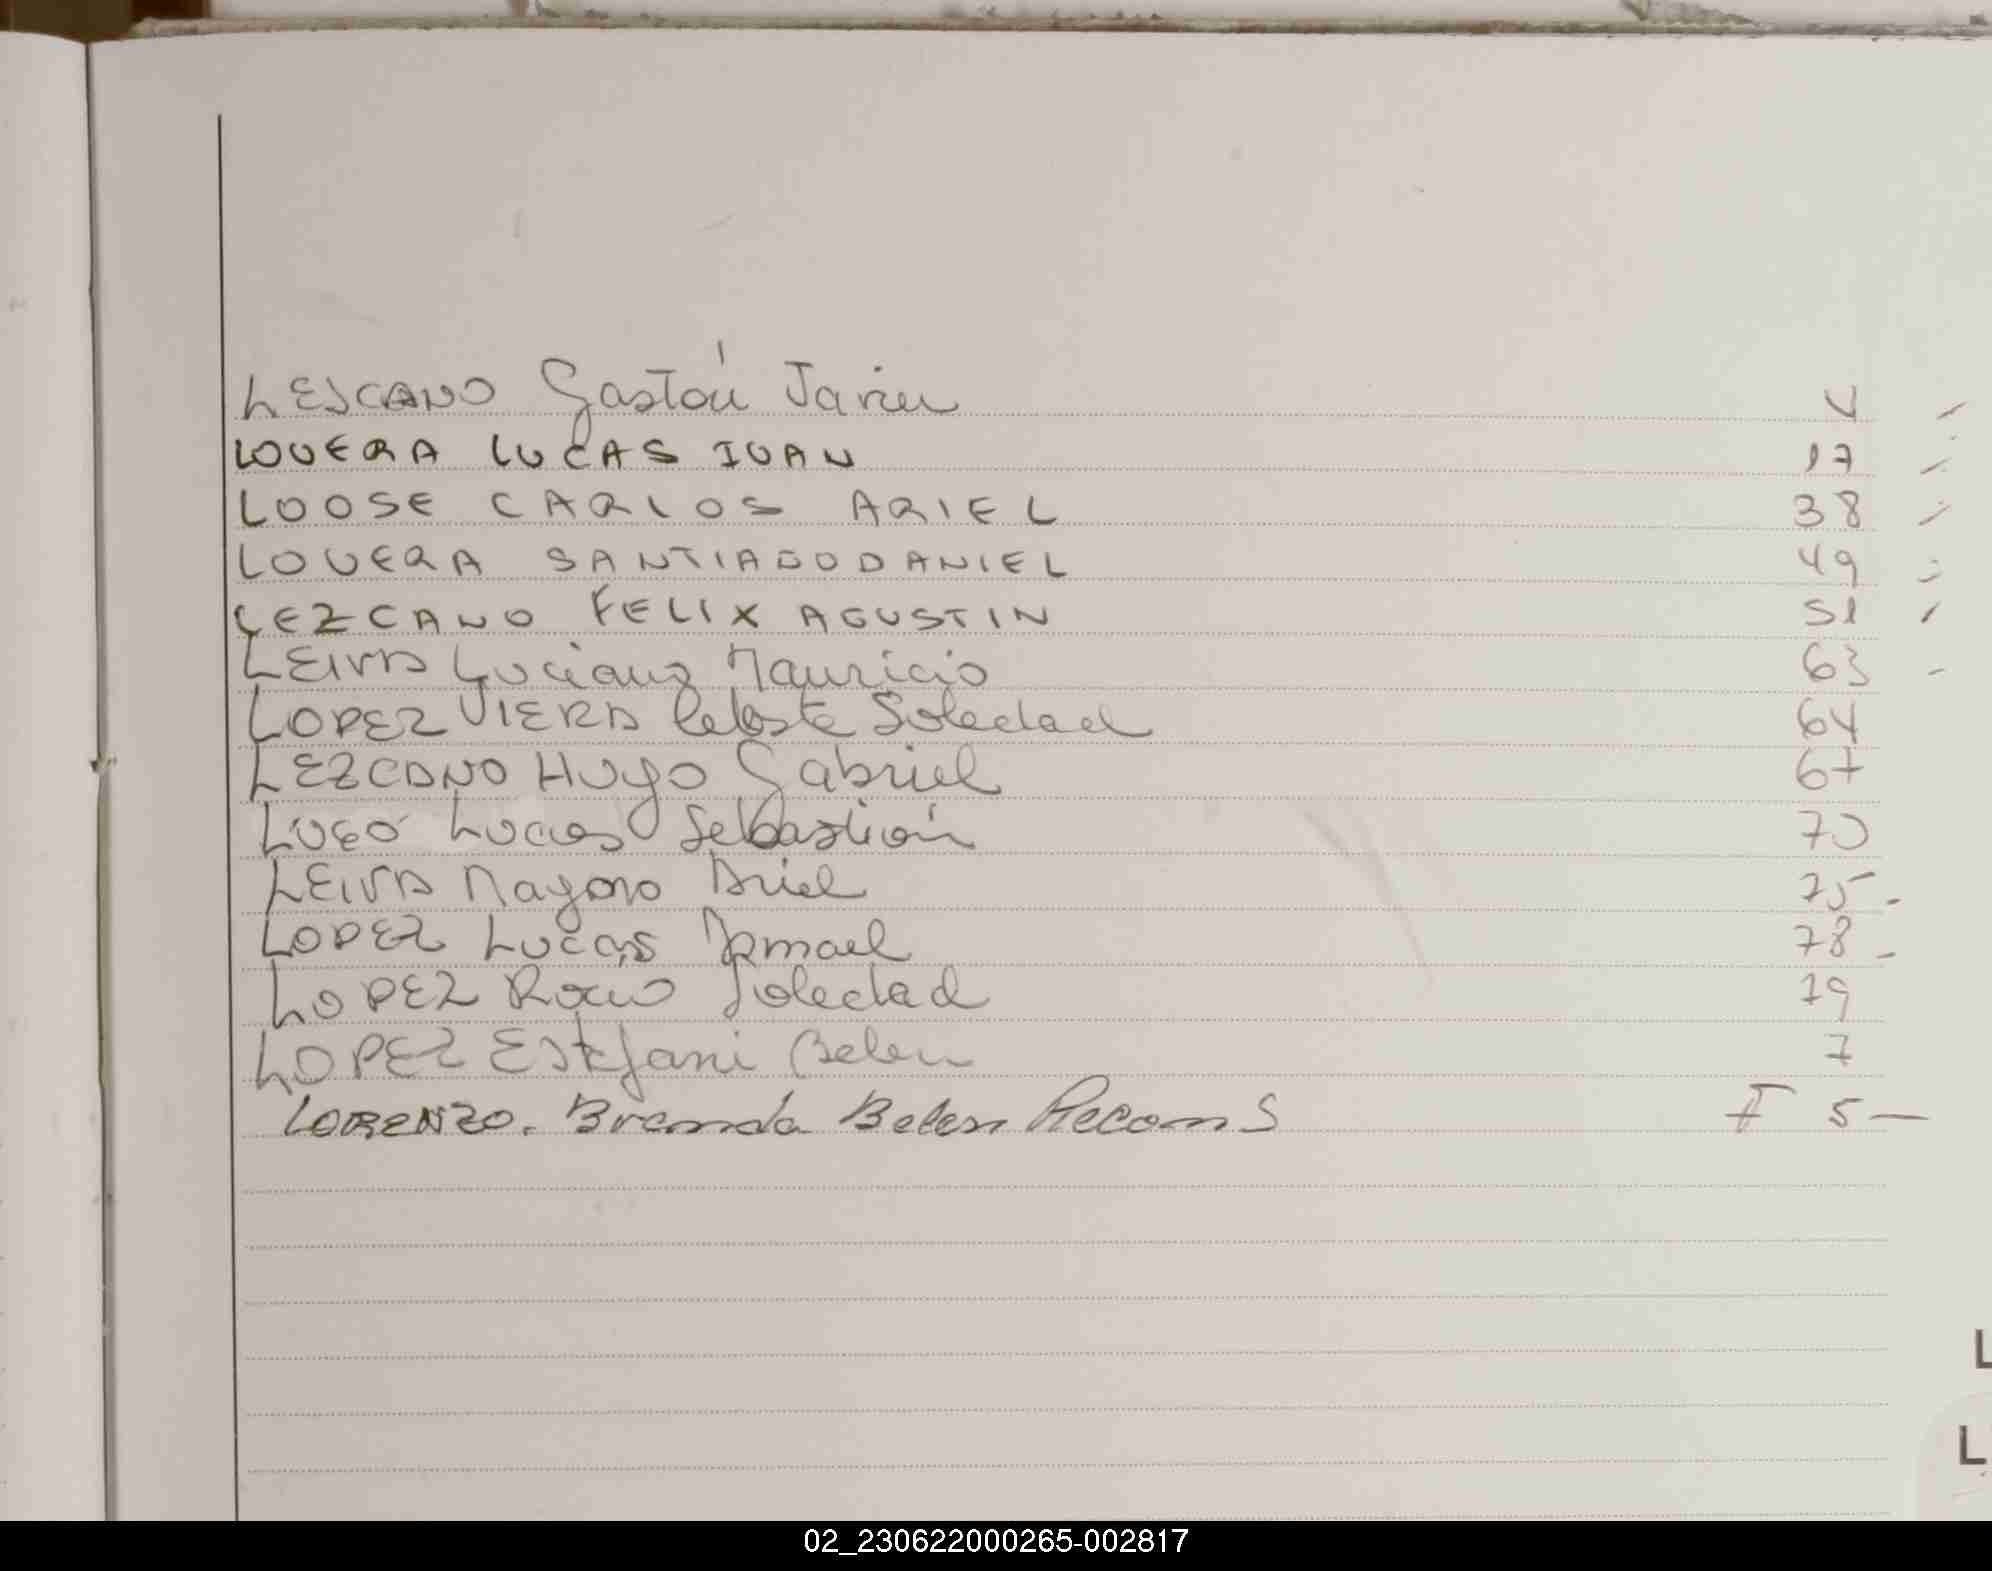 LESCANO Gastón Javier 4
LOVERA LUCAS IVAN 17
LOOSE CARLOS ARIEL 38
LOVERA SANTIAGO DANIEL 49
LEZCANO FELIX AGUSTIN 51
LEIVA Luciano Mauricio 63
LOPEZ VIERA Celeste Soledad 64
LEZCANO Hugo Gabriel 67
LUGO Lucas Sebastián 70
LEIVA Ariel 75
LOPEZ Lucas Ismael 78
LOPEZ Rocio Soledad 79
LOPEZ Estefani Belen 7
LORENZO. Brenda Belen Recons F 5
L
L
02_230622000265-002817